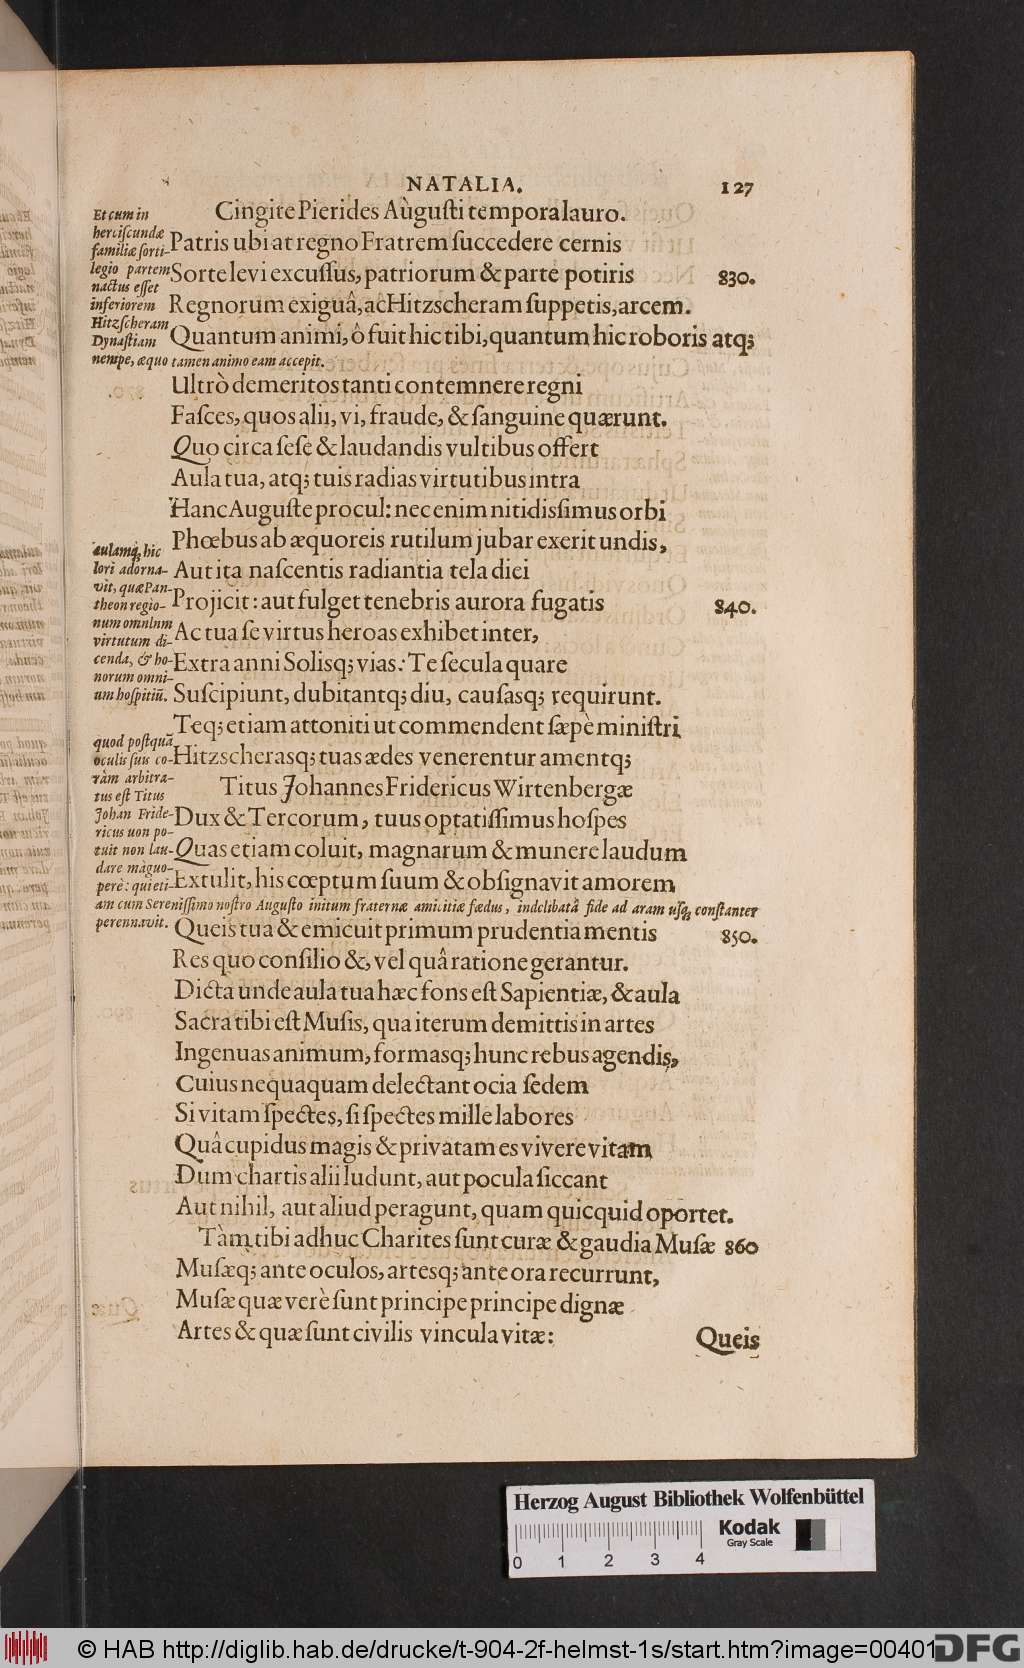 NATALIA. 127
Cingite Pierides Augusti tempora lauro.
Et cum in
herciscundæ
familiæ ſorti-
legio partem
nactus eſſet
inferiorem
Hitzſcheram
Dynaſtiam
nempe, æquo tamen animo eam accepit.
Patris ubi at regno Fratrem ſuccedere cernis
Sorte levi excuſſus, patriorum & parte potiris 830.
Regnorum exiguâ, ac Hitzscheram ſuppetis, arcem.
Quantum animi, ô fuit hic tibi, quantum hic roboris atq;
Ultrò demeritos tanti contemnere regni
Faſces, quos alii, vi, fraude, & ſanguine quærunt.
Quo circa ſeſe & laudandis vultibus offert
Aula tua, atq; tuis radias virtutibus intra
Hanc Auguſte procul: nec enim nitidisſimus orbi
Phœbus ab æquoreis rutilum jubar exerit undis,
aulamq́, hic
lori adorna-
vit, quæ Pan-
theon regio-
num omnInm
virtutum di-
cenda, & ho-
norum omni-
um hoſpitiũ.
Aut ita naſcentis radiantia tela diei
Projicit: aut fulget tenebris aurora fugatis 840.
Ac tua ſe virtus heroas exhibet inter,
Extra anni Solisq; vias: Te ſecula quare
Suſcipiunt, dubitantq; diu, cauſasq; requirunt.
Teq; etiam attoniti ut commendent ſæpè miniſtri
quod poſtquã
oculis ſuis co-
ràm arbitra-
tus eſt Titus
Johan Fride-
ricus uon po-
tuit non lau-
dare màguo-
perè: qui eti-
am cum Sereniſſimo noſtro Auguſto initum fraternæ amicitiæ fœdus, indelibatâ fide ad aram uſq, conſtanter
perennavit.
Hitzscherasq; tuas ædes venerentur amentq;
Titus Johannes Fridericus Wirtenbergæ
Dux & Tercorum, tuus optatiſſimus hoſpes
Quas etiam coluit, magnarum & munere laudum
Extulit, his cœptum ſuum & obſignavit amorem
Queis tua & emicuit primum prudentia mentis 850.
Res quo conſilio &, vel quâ ratione gerantur.
Dicta unde aula tua hæc fons eſt Sapientiæ, & aula
Sacra tibi eſt Muſis, qua iterum demittis in artes
Ingenuas animum, formasq; hunc rebus agendis,
Cuius nequaquam delectant ocia ſedem
Si vitam ſpectes, ſi ſpectes mille labores
Quâ cupidus magis & privatam es vivere vitam
Dum chartis alii ludunt, aut pocula ſiccant
Aut nihil, aut aliud peragunt, quam quicquid oportet.
Tàm tibi adhuc Charites ſunt curæ & gaudia Muſæ 860
Muſæq; ante oculos, artesq; ante ora recurrunt,
Muſæ quæ verè ſunt principe principe dignæ
Artes & quæ ſunt civilis vincula vitæ:
Queis
Herzog August Bibliothek Wolfenbüttel
0 1 2 3 4
Kodak
Gray Scale
© HAB http://diglib.hab.de/drucke/t-904-2f-helmst-1s/start.htm?image=00401
DFG